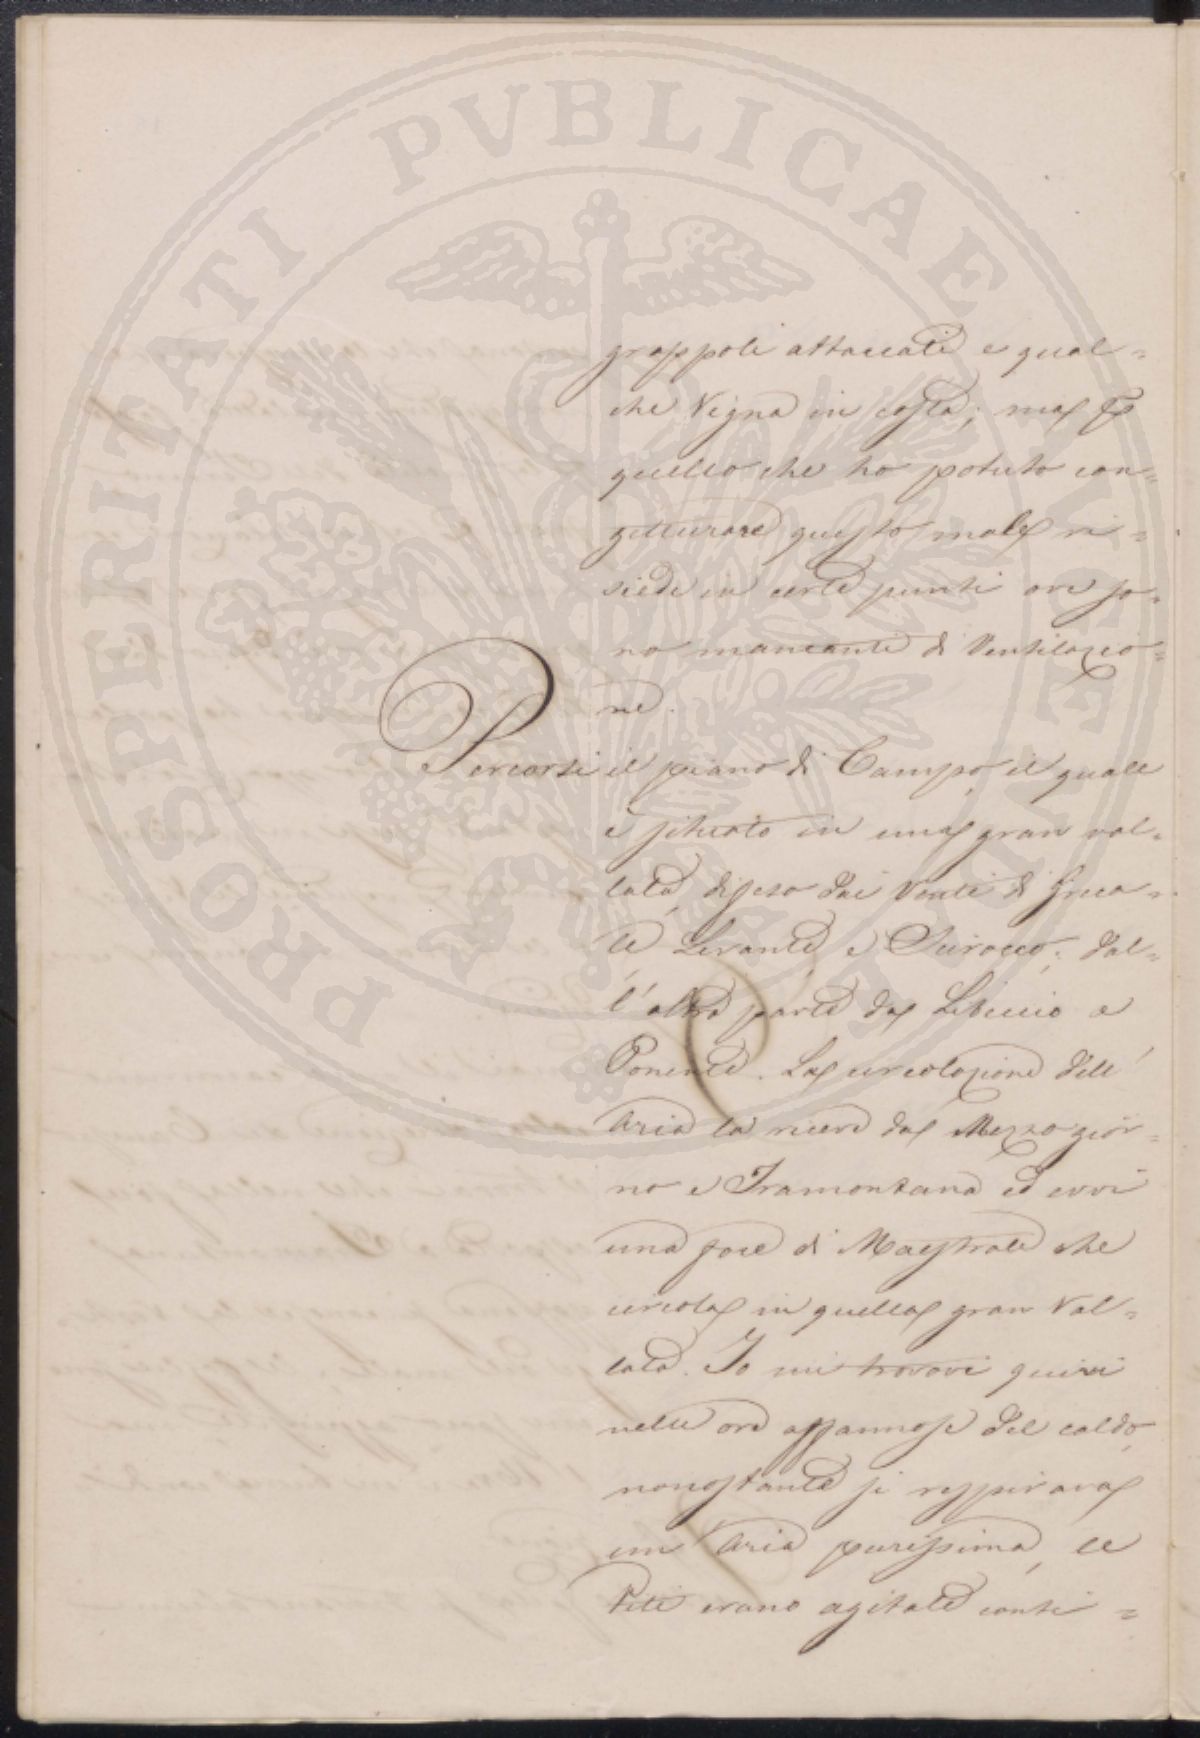 PROSPERITATI PVBLICAE
grappoli attaccati e qual=
che Vigna in costa; ma p
quello che ho potuto con=
getturare questo male ri=
siede in certi punti ove so=
no mancanti di Ventilazio=
ne.
Percorsi il piano di Campo, il quale
e situato in una gran val=
lata, difeso dai Venti di Greca=
le Levante e Scirocco; dal=
l'altra parte da Libeccio e
Ponente. La circolazione dell'
Aria la riceve dal Mezzogior=
no e Tramontana ed evvi
una foce di Maestrale che
circola in quella gran Val=
lata. Io mi trovavi quivi
nelle ore affannose del caldo,
nonostante si respirava
un Aria purissima, le
Viti erano agitate conti=